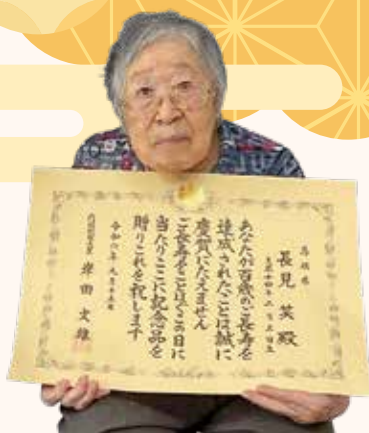 長見 笑 殿
あなたが百歳のご長寿を
達成されたことは誠に
慶賀にたえません
ご長寿をことほぐこの日に
当たりここに記念品を
贈りこれを祝します
令和六年九月十五日
内閣総理大臣 岸田文雄